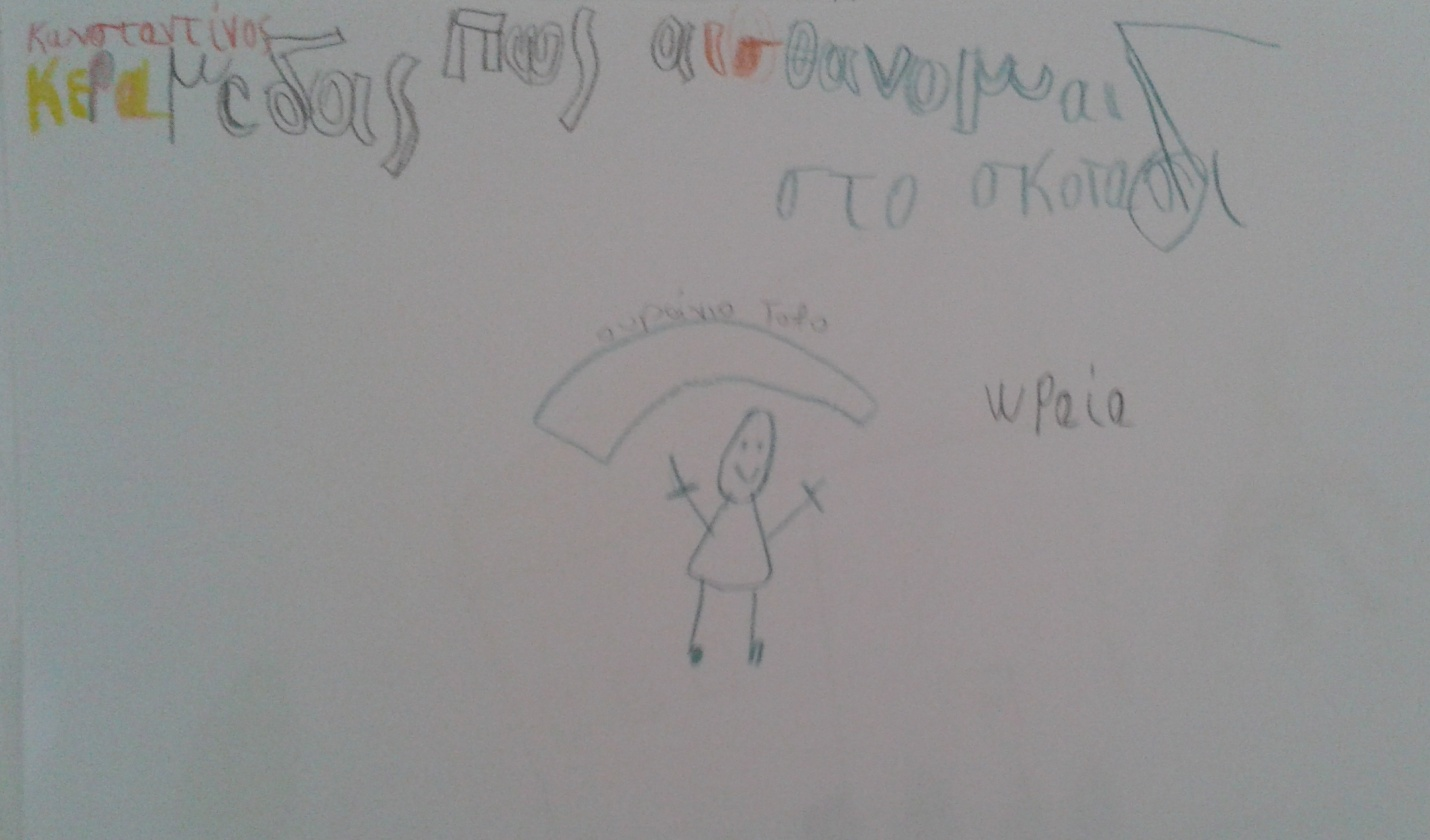 Κωνσταντίνος
Κεραμεδας Πως αισθανομαι
στο σκοταδι
ουράνιο Τοξο
ωραία